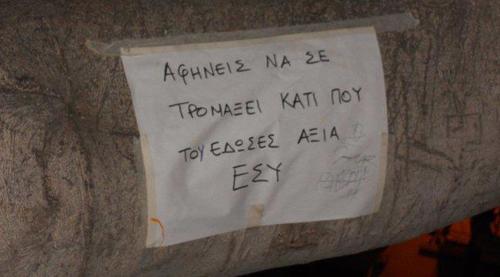 ΑΦΗΝΕΙΣ ΝΑ ΣΕ
ΤΡΟΜΑΞΕΙ ΚΑΤΙ ΠΟΥ
ΤΟΥ ΕΔΩΣΕΣ ΑΞΙΑ
ΕΣΥ